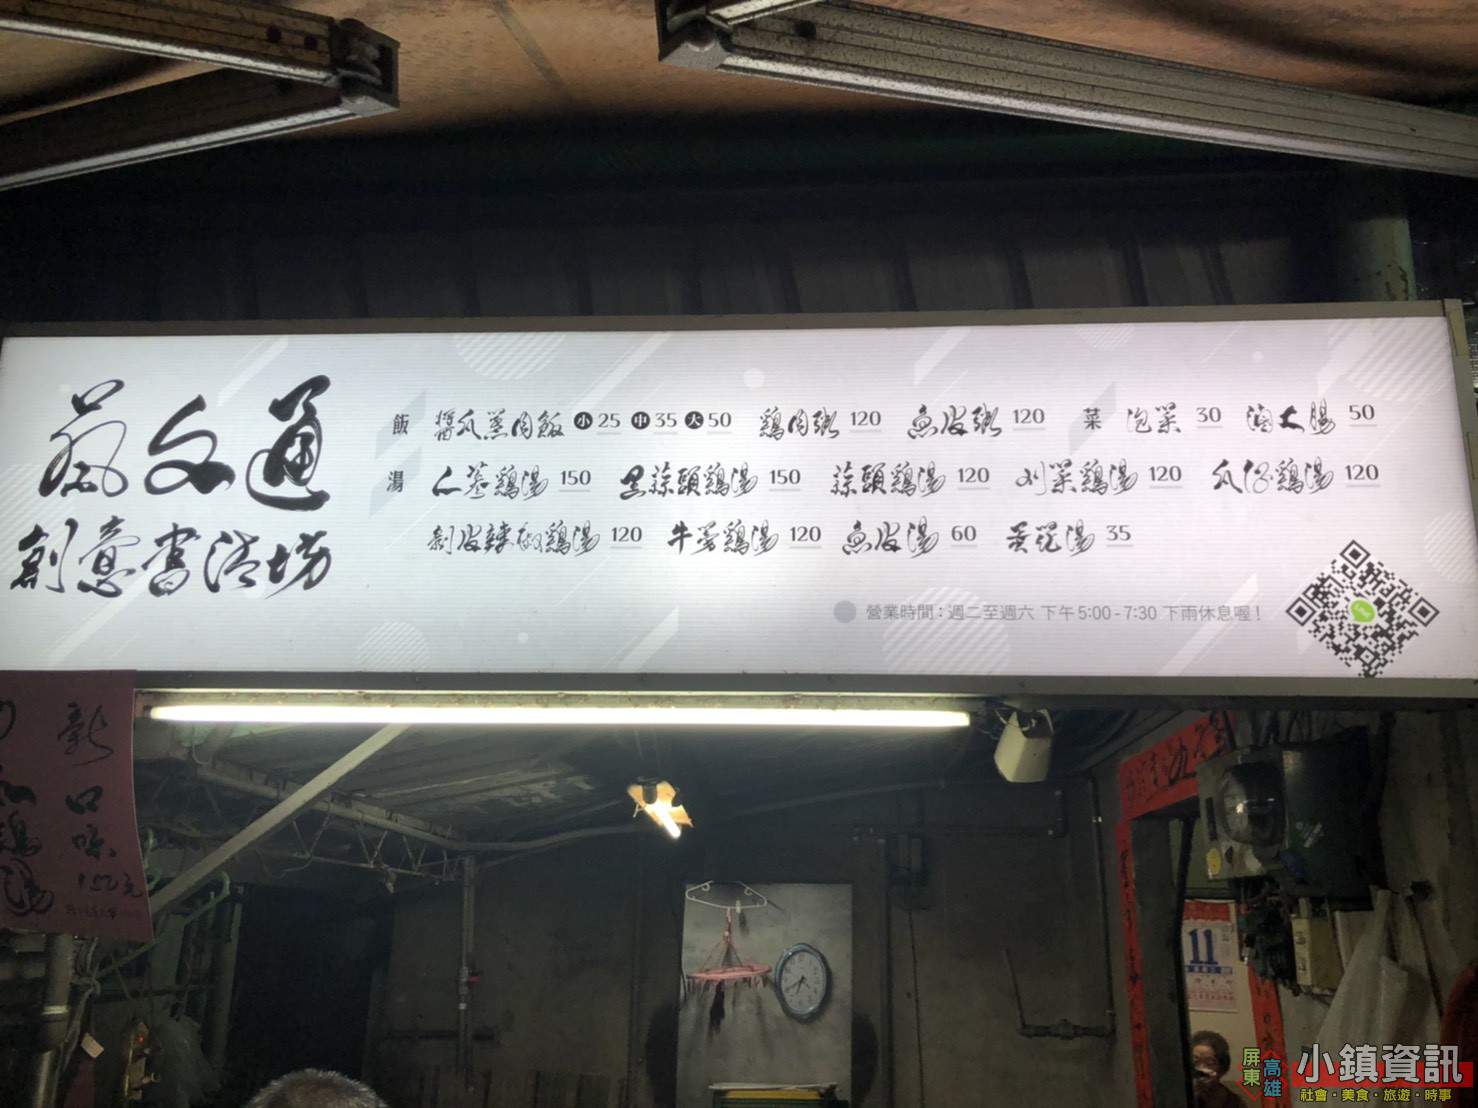 蔡文通
創意書法坊
飯 醬瓜蒸肉飯 小 25 中 35 大 50 鷄肉粥 120 魚皮粥 120 菜 泡菜 30 滷大腸 50
湯 仁葠鷄湯 150 黑蒜頭鷄湯 150 蒜頭鷄湯 120 刈菜鷄湯 120 瓜仔鷄湯 120
剝皮辣椒鷄湯 120 牛蒡鷄湯 120 魚皮湯 60 湯 35
營業時間：週二至週六 下午5:00-7:30 下雨休息喔！
新口味
150元
鷄湯
11
屏東
高雄
小鎮資訊
社會・美食・旅遊・時事